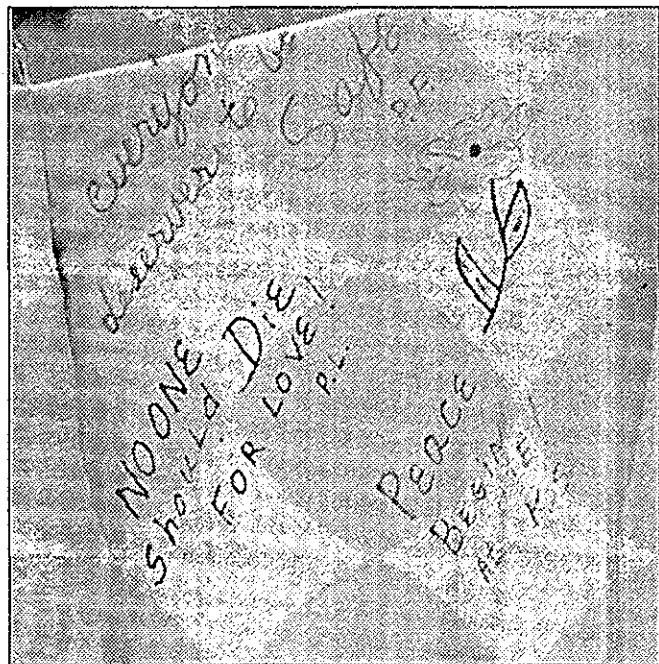 everyone
deserves to be
Safe
NO ONE
ShouLd DiE
FOR LOVE!
P.L.
PeACE
BEGINS